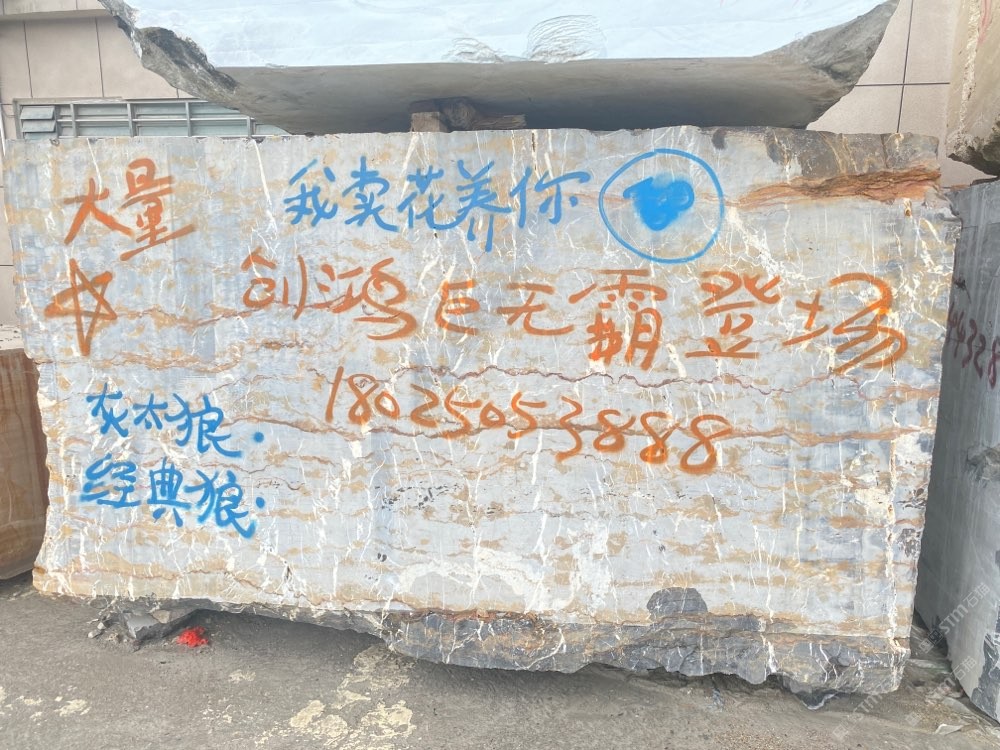 大量
我卖花养你
创鸿巨无霸登场
18025053888
灰太狼.
经典狼.